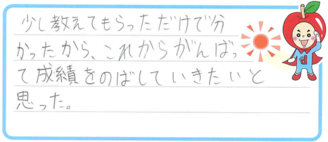 少し教えてもらっただけで分
かったから、これからがんばっ
て成績をのばしていきたいと
思った。